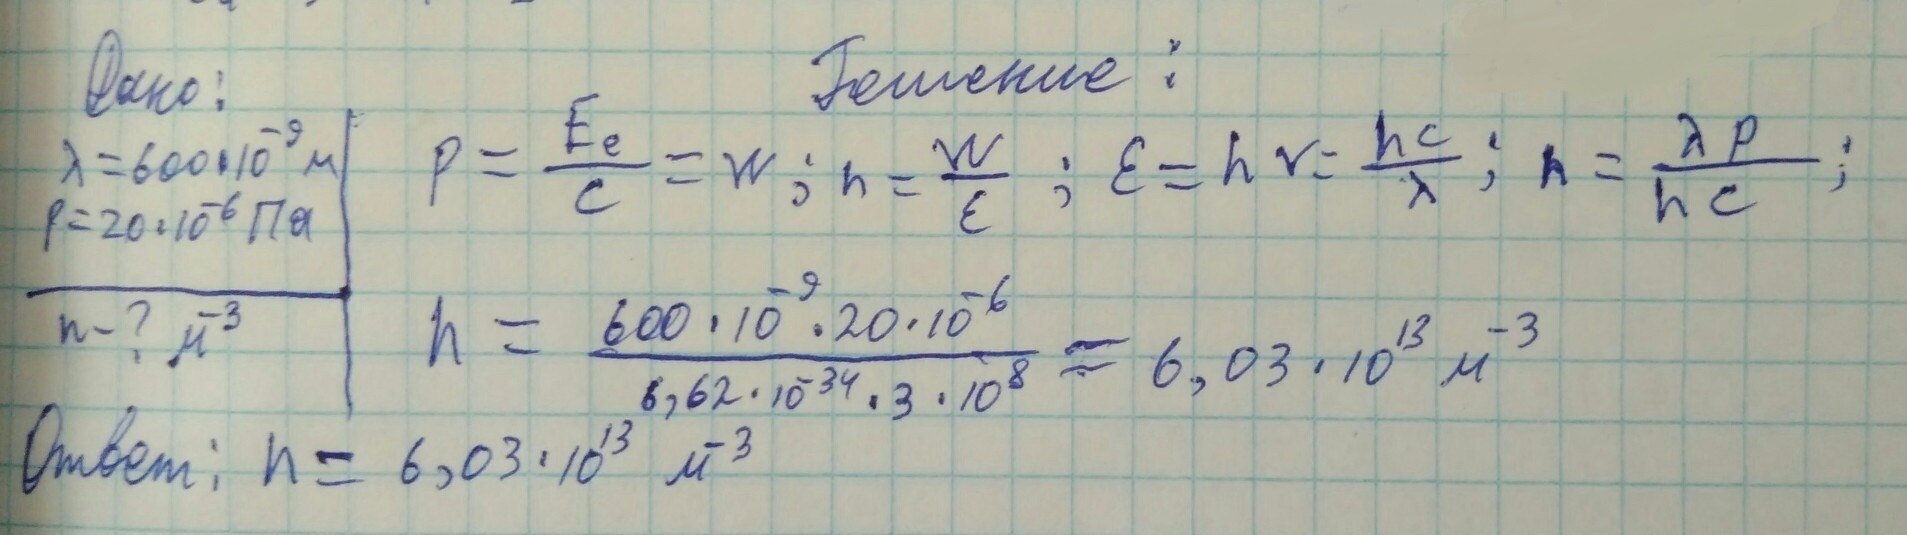 Дано:
Решение:
λ = 600·10⁻⁹ м
P = 20·10⁻⁶ Па
n - ? м⁻³
P = Eₑ/c = W; n = W/ε; ε = hν = hc/λ; n = λP/hc;
n = 600·10⁻⁹·20·10⁻⁶ / 6,62·10⁻³⁴·3·10⁸ = 6,03·10¹³ м⁻³
Ответ: n = 6,03·10¹³ м⁻³